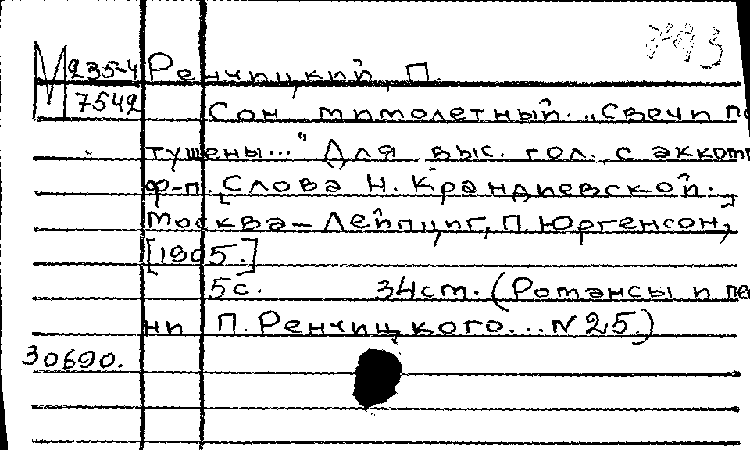 793
М 235-4 Ренчицкий, П.
7542 Сон мимолетный. „Свечи по
тушены..." Для выс. гол. с аккомп
ф-п. [Слова Н. Крандиевской.]
Москва-Лейпциг, П. Юргенсон,
[1905.]
5с. 34см. (Романсы и пес
ни П. Ренчицкого... N 25.)
30690.